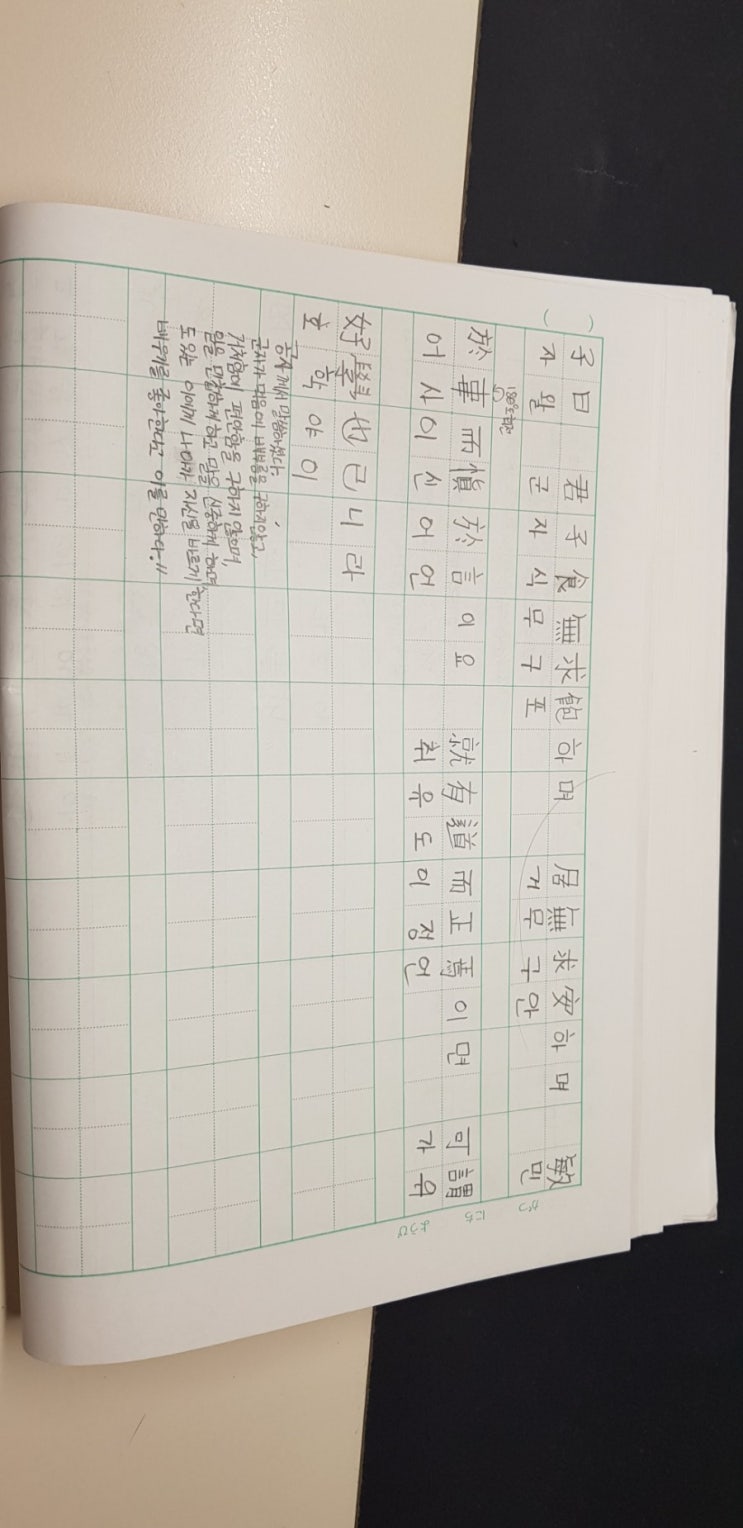 子曰 君子食無求飽하며 居無求安하며 敏
자왈 군자식무구포 거무구안 민
於事而慎於言이요 就有道而正焉이면 可謂
어사이신어언 취유도이정언 가위
好學也已니라
호학야이
공자께서 말씀하셨다.
군자가 먹음에 배부름을 구하지 않고,
거처함에 편안함을 구하지 않으며,
일을 민첩하게 하고 말을 신중하게 하며,
도 있는 이에게 나아가 자신을 바르게 한다면
배우기를 좋아한다고 이를 만하다."
がつ
にち
ようび